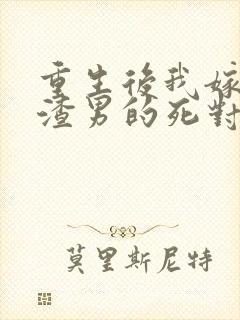 重生後我嫁
渣男的死對
莫里斯尼特